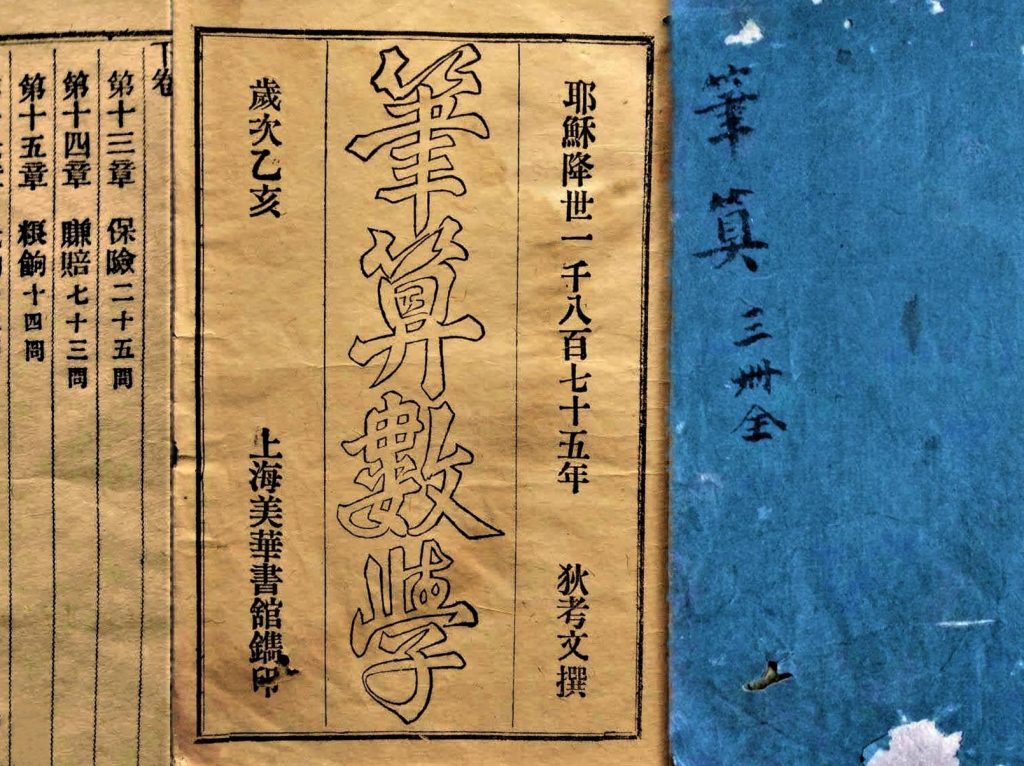 筆算
三冊全
耶穌降世一千八百七十五年 狄考文撰
筆算數學
歲次乙亥 上海美華書館鐫印
下卷
第十三章 保險二十五問
第十四章 賺賠七十三問
第十五章 粮餉十四問